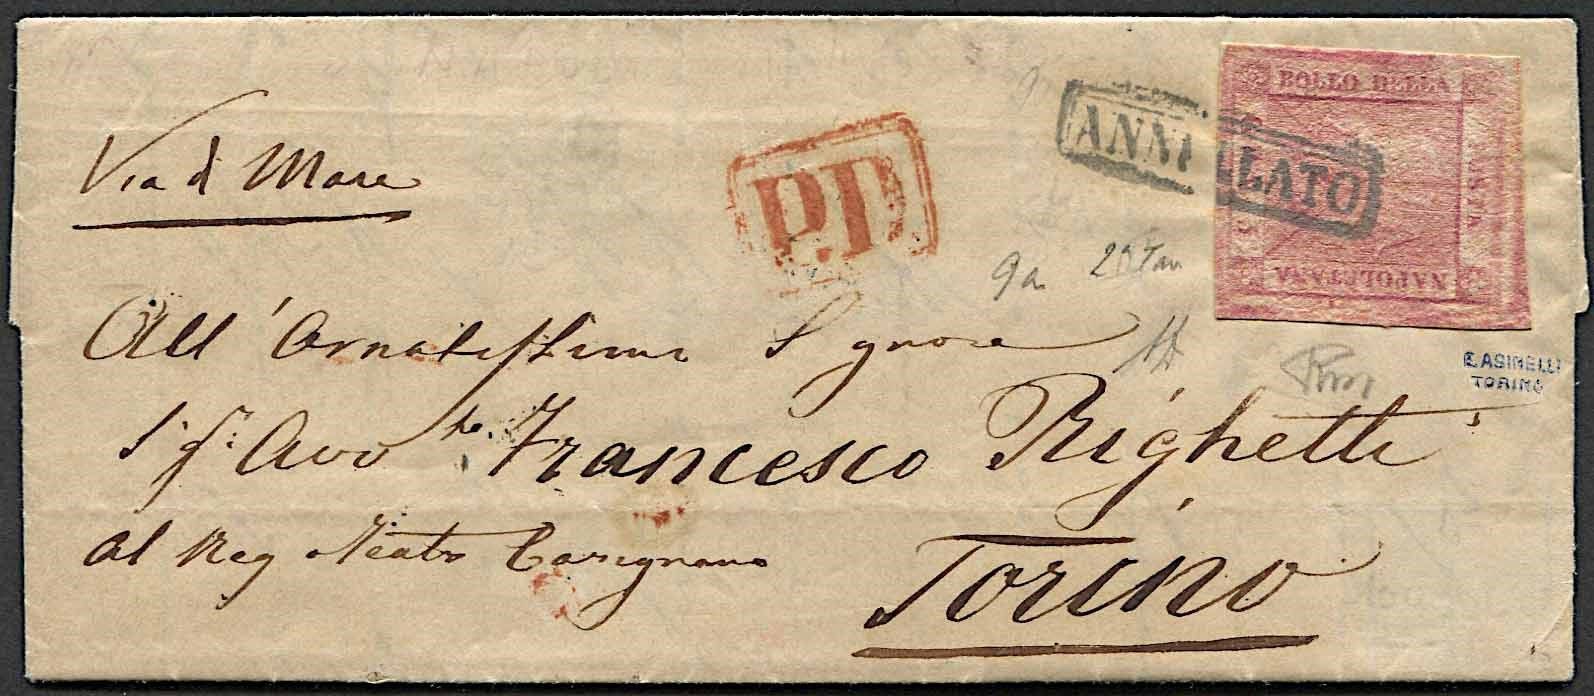 Via d Mare
P.D.
ANNULLATO
BOLLO DELLA
POSTA
NAPOLETANA
9a 20 Tor
All' Ornatissimo Signore
Sigr. Avvto. Francesco Righetti
al Reg Teatro Carignano
Torino
E. ASINELLI
TORINO